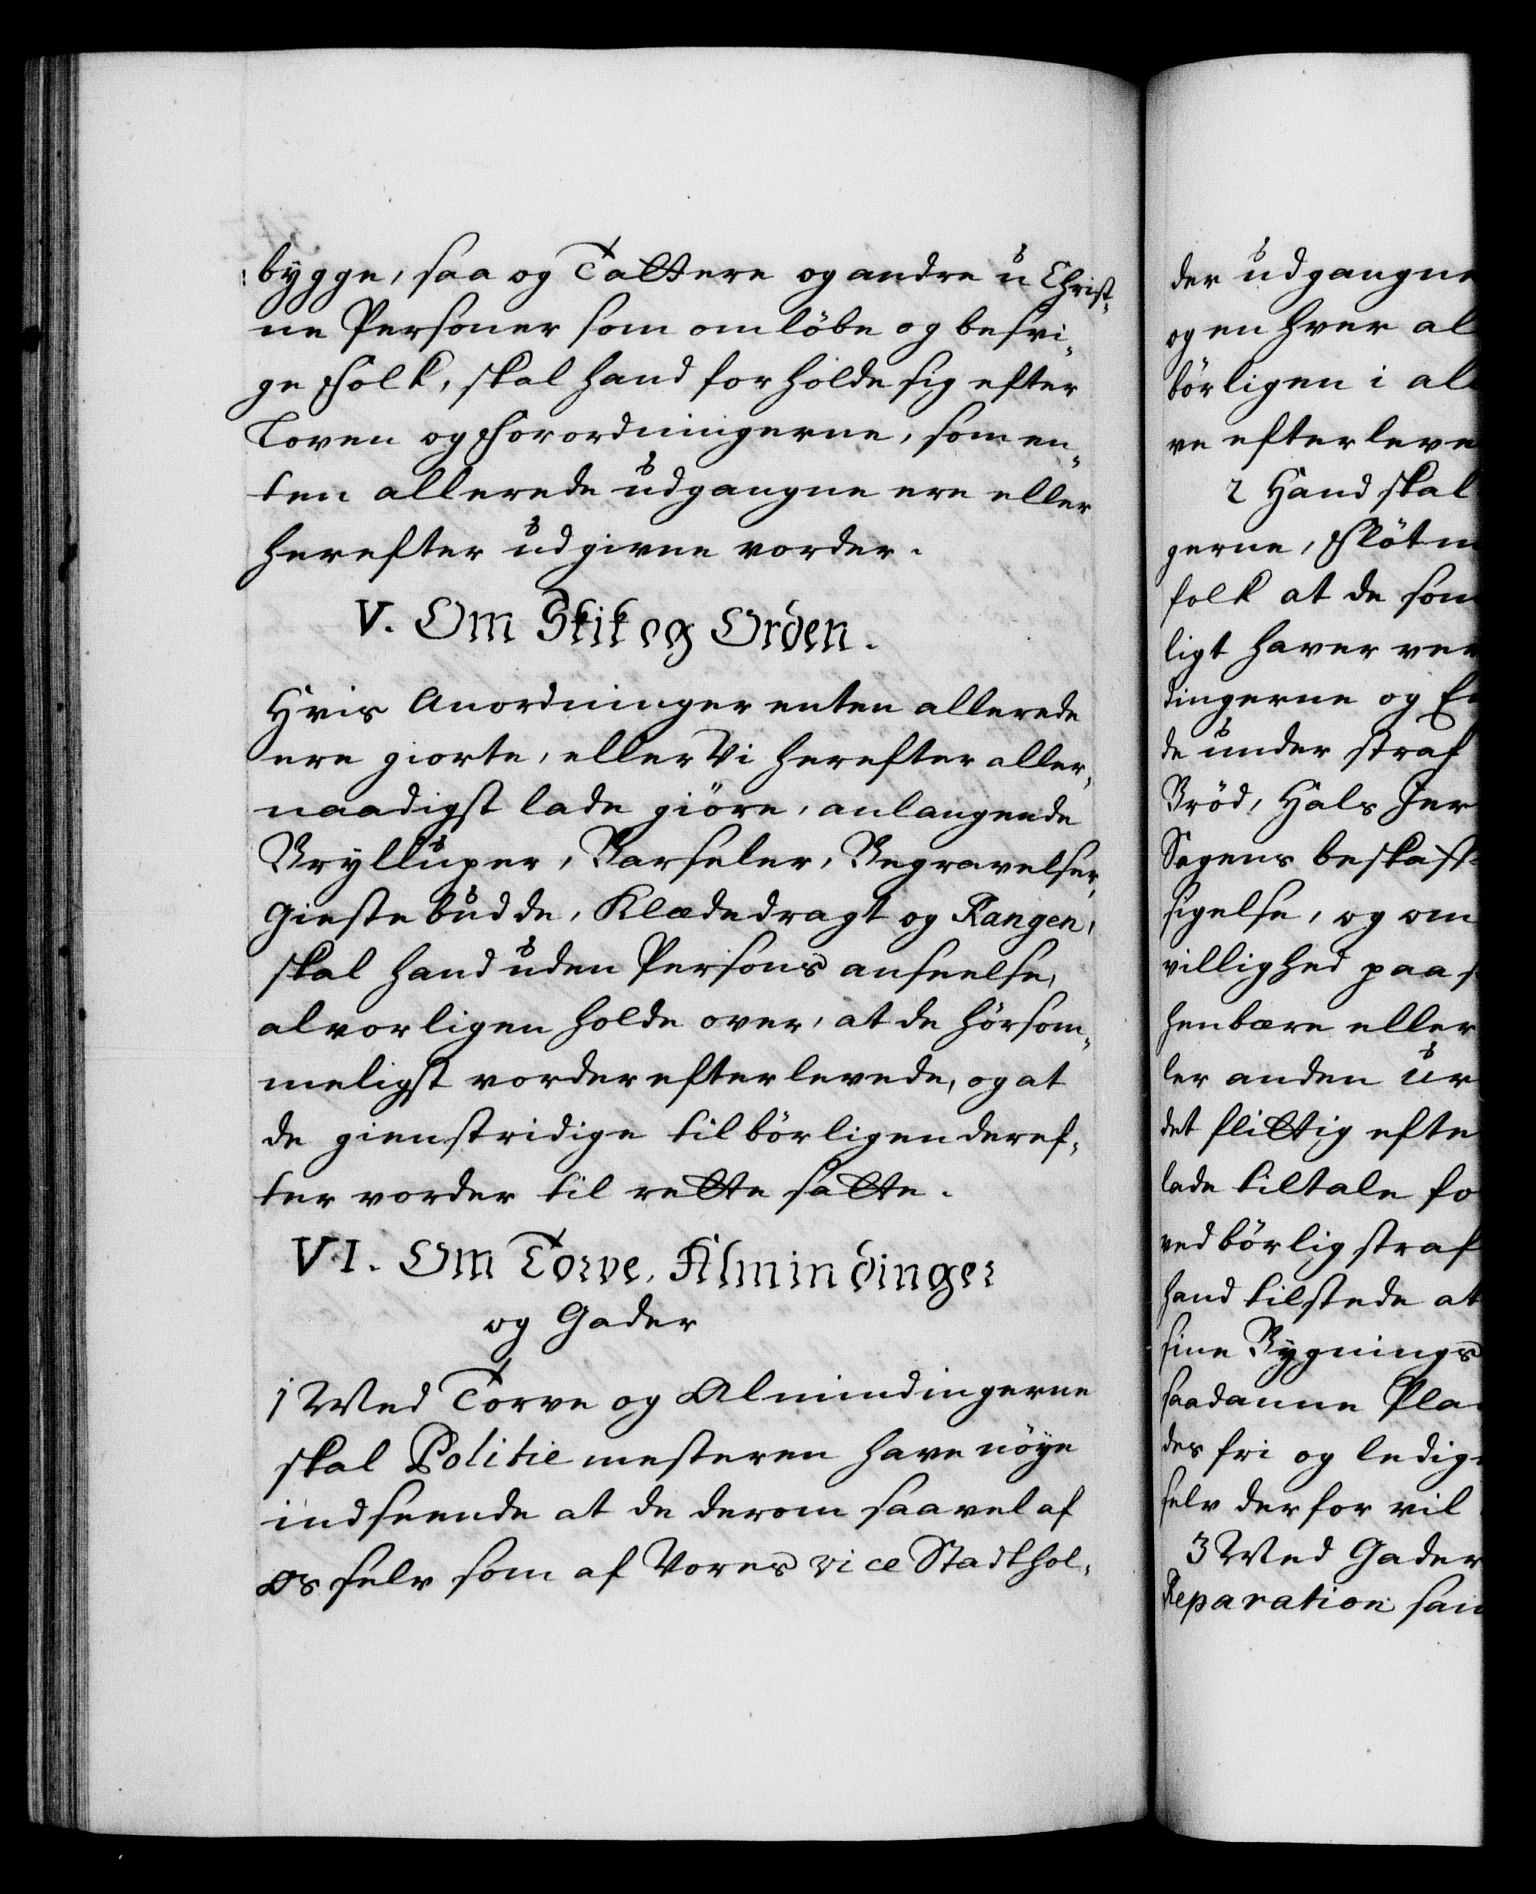 bygge, saa og Tattere og andre u Christ-
ne Personer som omløbe og besvi-
ge Folk, skal hand forholde sig efter
Loven og Forordningerne, som en-
ten allerede udgangne ere eller
herefter udgivne vorder.
V. Om Skik og Orden.
Hvis Anordninger enten allerede
ere giorte, eller Vi herefter aller-
naadigst lade giöre, anlangende
Brylluper, Barseler, Begravelser,
Giestebudde, Klædedragt og Rangen,
skal hand uden Persons anseelse,
alvorligen holde over, at de hörsom-
meligst vorder efterlevede, og at
de gienstridige tilbörligen deref-
ter vorder til rette satte.
VI. Om Torve, Almindinger
og Gader
1 Med Torve og Almindingerne
skal Politiemesteren have nöye
indseende at de derom saavel af
os selv som af Vores vice Stadthol-
der udgangne
og en hver al
börligen i al
ve efterleve
2 Hand skal
gerne, Flötm
folk at de som
ligt haver ver
dingerne og
de under straf
Bröd, Hals Jer
Sagens beskaff
sigelse, og om
villighed paa
henbære eller
ler anden Ur
det flittig efte
lade tiltale fo
vedbörlig straf
hand tilstede at
sine Bygnings
saadanne Pla
des fri og ledig
selv derfor vil
3 Med Gader
Reparation